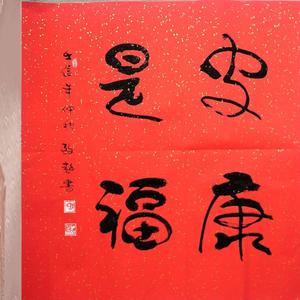 安康
是福
年仲秋
書